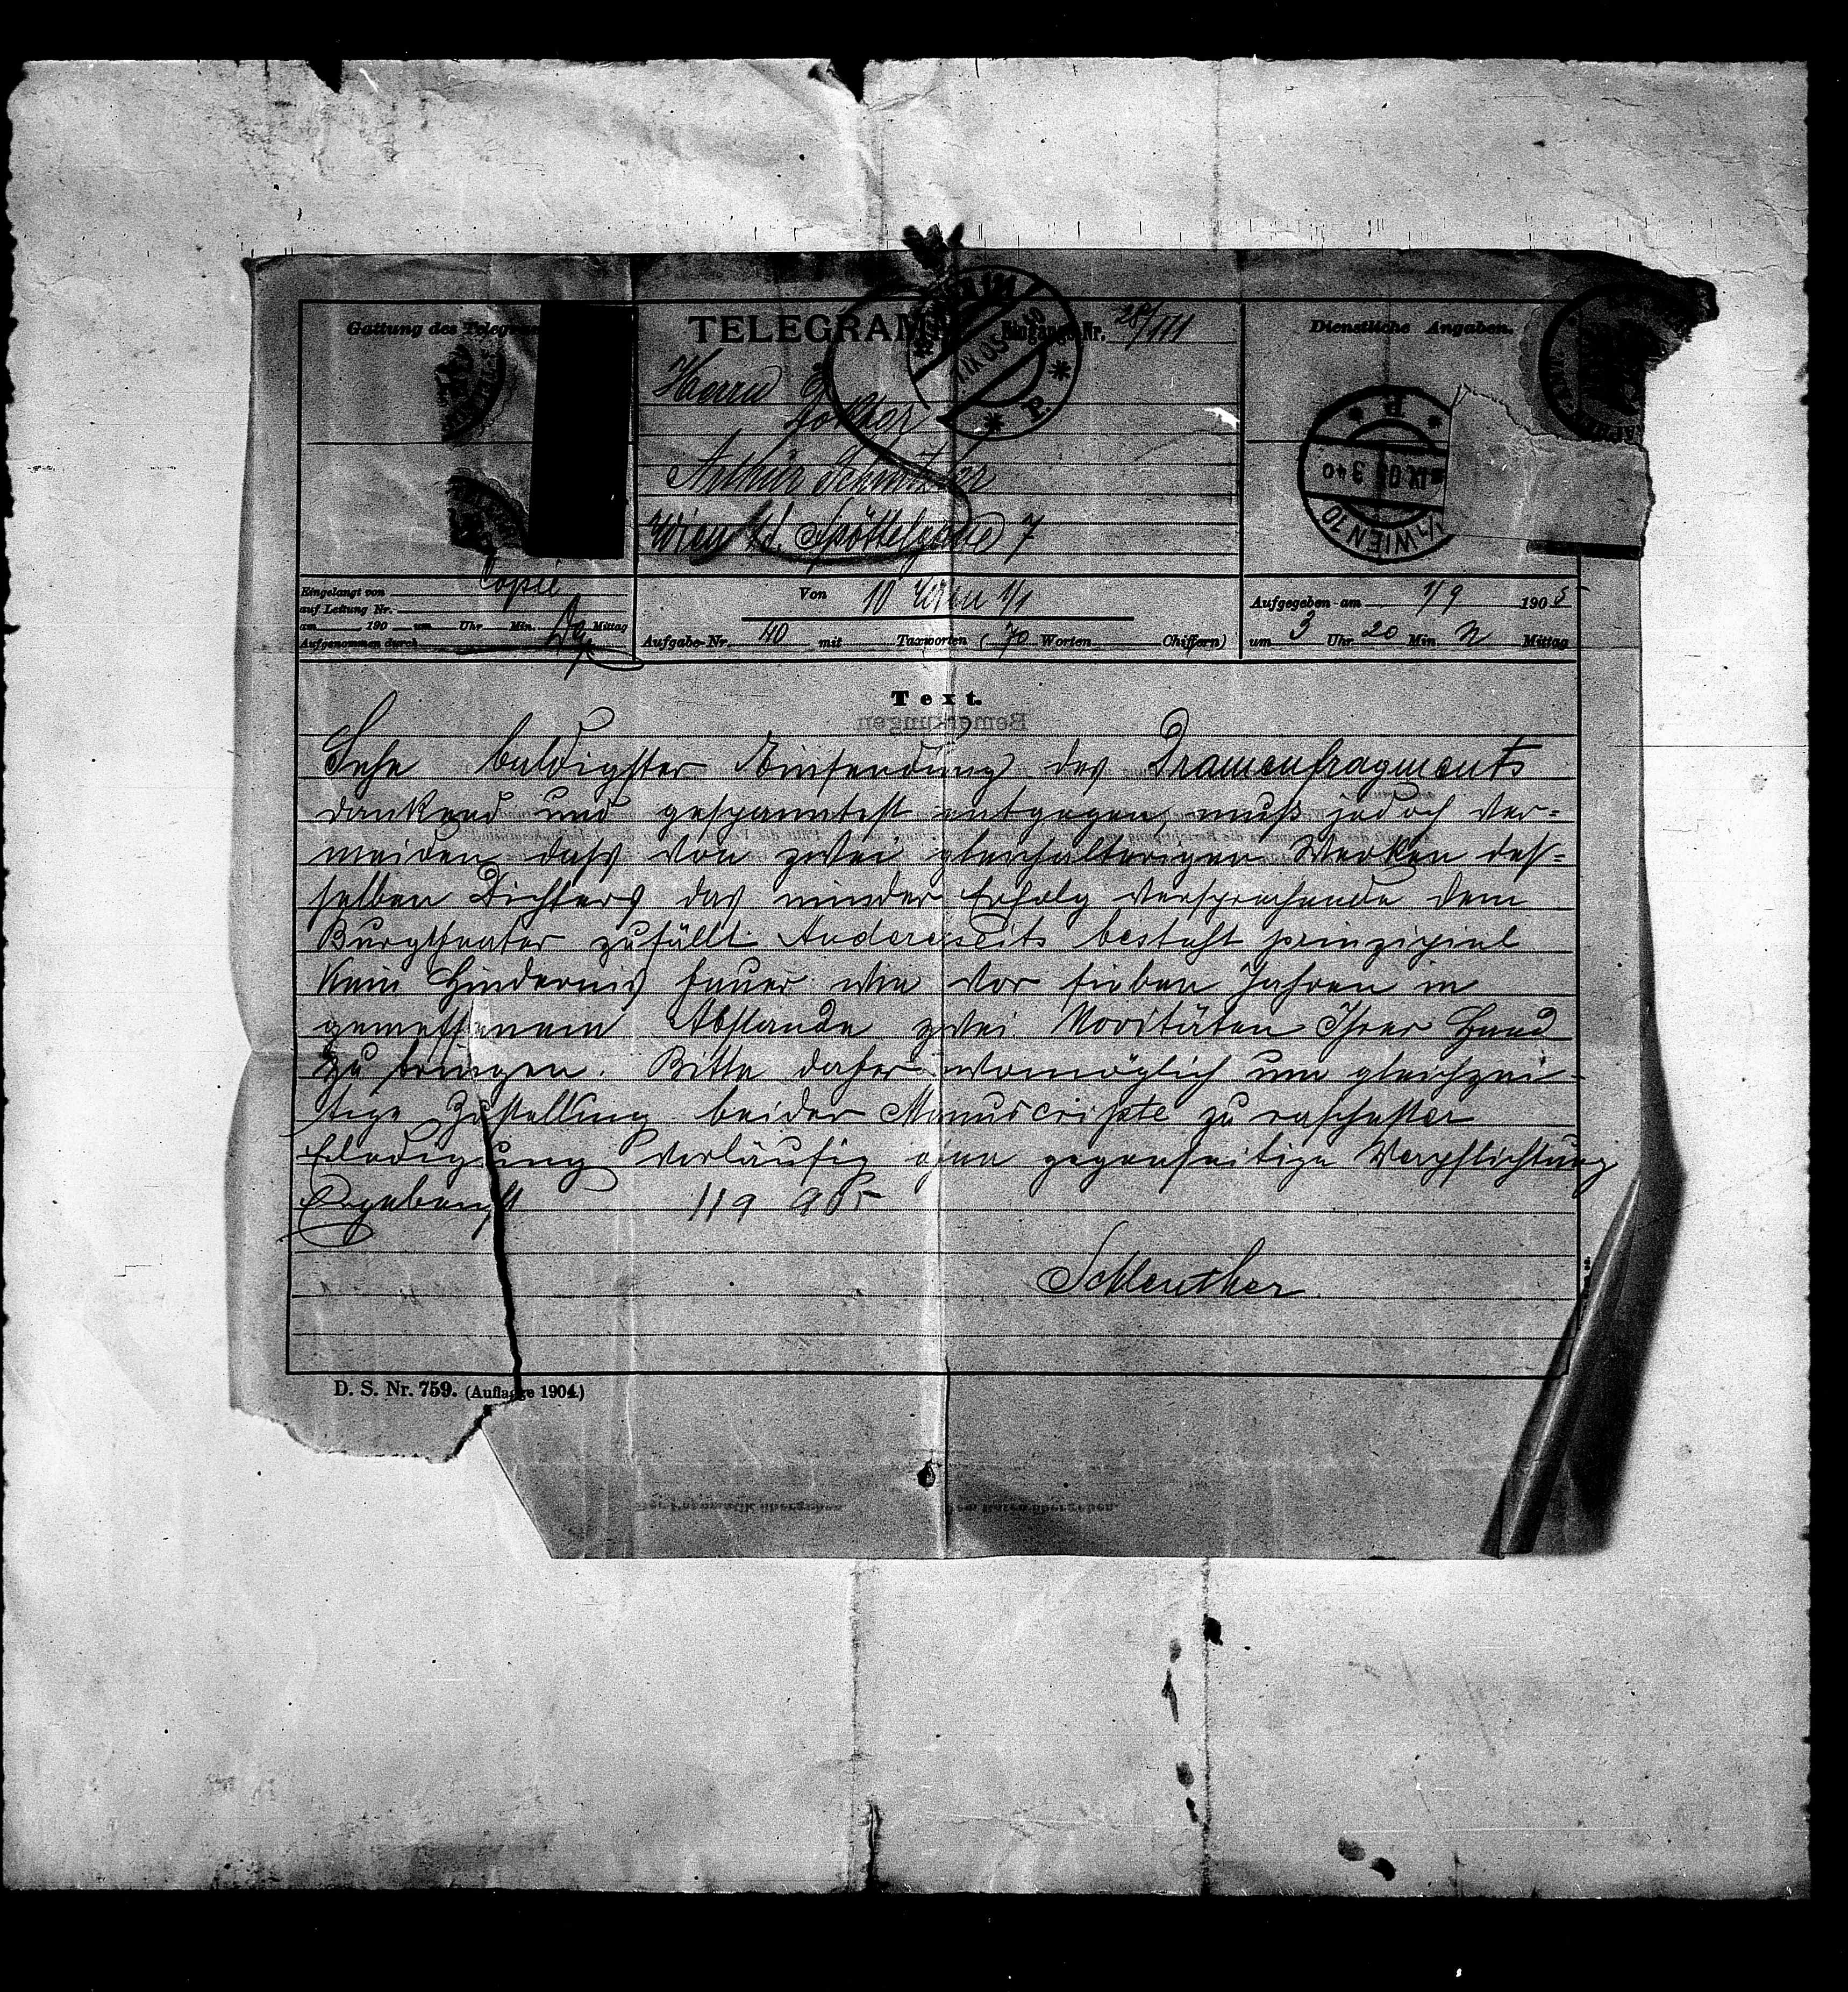 Gattung des Telegra
TELEGRAMM Eingangs-Nr. 28/111
Dienstliche Angaben.
Herrn
Doktor
Arthur Schnitzler
Wien Spöttelgasse 7
Eingelangt von Copie
auf Leitung Nr.
am 190 um Uhr Min. Mittag
Aufgenommen durch
Von 10 Wien 1/1
Aufgabe-Nr. 40 mit Taxworten (70 Worten Chiffern)
Aufgegeben am 1/9 1905
um 3 Uhr 20 Min N Mittag
Text.
Bemerkungen
Sehe baldigster Einsendung des Dramenfragments
dankend und gespanntest entgegen muß jedoch ver=
meiden dass von zwei gleichalterigen Werken des=
selben Dichters das minder Erfolg versprechende dem
Burgtheater zufällt. Andererseits besteht prinzipiel
kein Hindernis heuer wie vor sieben Jahren in
gemessenem Abstande zwei Novitäten Ihrer Hand
zu bringen. Bitte daher womöglich um gleichzei-
tige Zustellung beider Manuscripte zu raschester
Erledigung vorläufig ohne gegenseitige Verpflichtung
Ergebenst 1 / 9 905
Schlenther
D. S. Nr. 759. (Auflage 1904.)
WIEN 70
IX 05 3 40
Der Pneumatik übergeben
Dem Boten übergeben.